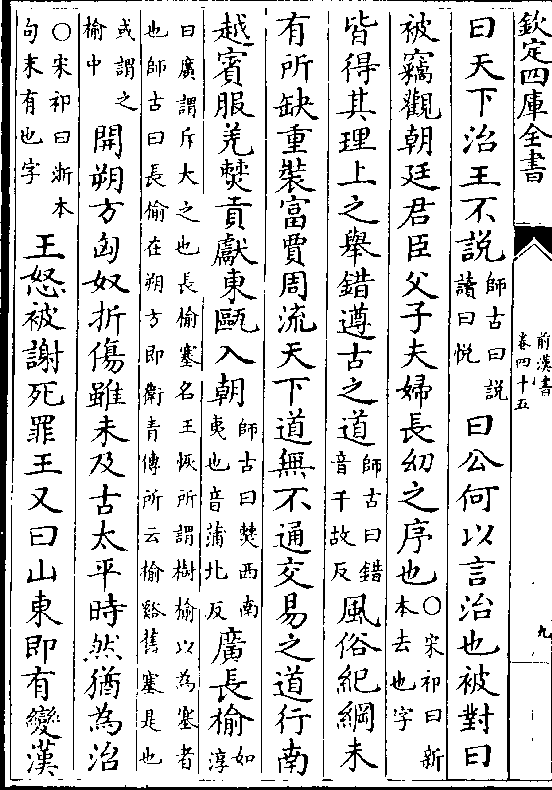 欽定四庫全書
前漢書
卷四十五
九
曰天下治王不說師古曰說讀曰悅曰公何以言治也被對曰
被竊觀朝廷君臣父子夫婦長幼之序也〇宋祁曰新本去也字
皆得其理上之舉錯遵古之道師古曰錯音千故反風俗紀綱未
有所缺重裝富賈周流天下道無不通交易之道行南
越賓服羌僰貢獻東甌入朝師古曰僰西南夷也音蒲北反廣長榆如淳
曰廣謂斥大之也長榆塞名王恢所謂樹榆以為塞者
也師古曰長榆在朔方即衛青傳所云榆谿舊塞是也
或謂之榆中開朔方匈奴折傷雖未及古太平時然猶為治
〇宋祁曰浙本句末有也字王怒被謝死罪王又曰山東即有變漢